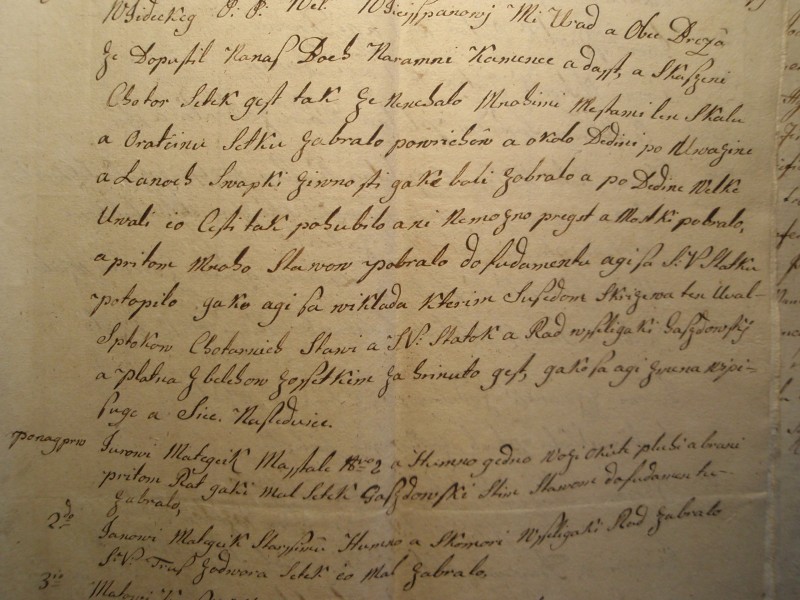 Widecky P. P. Wel. Wiesspanowj Mi Urad a Obec Drazo
že Dopustil Nanas Boch Naramni Kamenec a dasst, a Skaszeni
Chotor Setek gest tak že Nenehalo Mnohimi Mestami len Skalu
a Oratčinu Setku zabralo powrichow a okolo Dedini po Uwazine
a Lanoch Swapki živnosti gake boli zabralo a po Dedine Welke
Uwali čo Cesti tak pohubilo ani Nemožno pregst a Mostki pobralo,
a pritom Mnoho Stawow pobralo do fudamentu agi sa S: V Statku
potopilo gako agi sa wiklada kterim Susedom Skrizewa ten Uwal-
S potokow Chotarnich Stawi a S.V: Statok a Rad wsseligaki Gaszdowskj
a platna z belchow zossetkim zahrinuto gest, gako sa agi zruna wspi-
suge a Sice. Nasleduice.
ponagprw Jurowi Mategčik Masstale No 2 a Humno gedno Wozi Okute pluhi a brani
pritom Rat gaki Mal Setek Gaszdowski Stim Stawom dofudamentu-
zabralo,
2do Janowi Mategčik Starssimu Humno a Skomori Wsseligaki Rad zabralo
S: V: Trus zodwora Setek čo Mal zabralo,
3tio